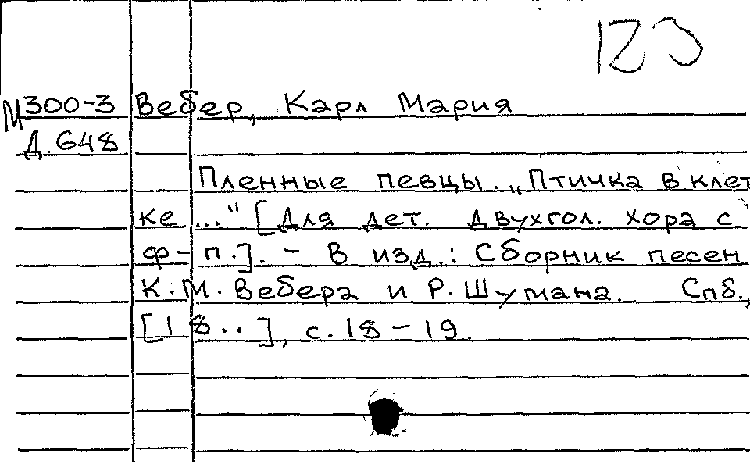 123
М300-3 Вебер, Карл Мария
Д.648
Пленные певцы. „Птичка в клет
ке ..." [Для дет. двухгол. хора с
ф-п.]. - В изд.: Сборник песен
К.М. Вебера и Р. Шумана. Спб.,
[18..], с. 18-19.